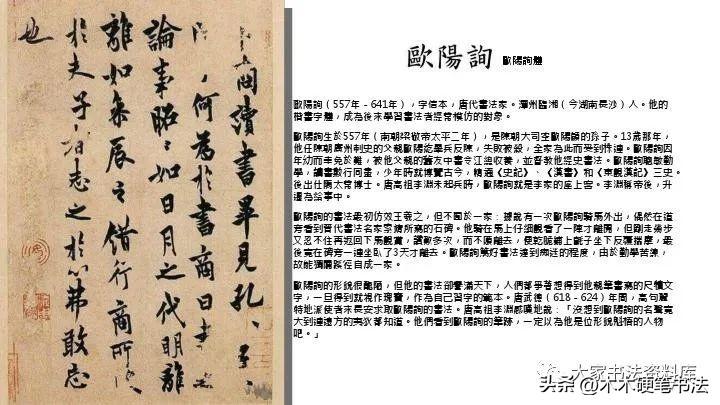 商讀書畢見孔
何為於書商曰書
論事昭〻如日月之代明離
離如參辰之錯行商所
於夫子者志之於心弗敢忘
也
歐陽詢 歐陽詢體
歐陽詢（557年－641年），字信本，唐代書法家。潭州臨湘（今湖南長沙）人。他的
楷書字體，成為後來學習書法者經常模仿的對象。
歐陽詢生於557年（南朝梁敬帝太平二年），是陳朝大司空歐陽頠的孫子。13歲那年，
他任陳朝廣州刺史的父親歐陽紇舉兵反陳，失敗被殺，全家為此而受到株連。歐陽詢因
年幼而幸免於難，被他父親的舊友中書令江總收養，並督教他經史書法。歐陽詢聰敏勤
學，讀書數行同盡，少年時就博覽古今，精通《史記》、《漢書》和《東觀漢記》三史。
後出仕隋太常博士。唐高祖李淵未起兵時，歐陽詢就是李家的座上客。李淵稱帝後，升
遷為給事中。
歐陽詢的書法最初仿效王羲之，但不囿於一家；據說有一次歐陽詢騎馬外出，偶然在道
旁看到晉代書法名家索靖所寫的石碑。他騎在馬上仔細觀看了一陣才離開，但剛走幾步
又忍不住再返回下馬觀賞，讚歎多次，而不願離去，便乾脆鋪上氈子坐下反覆揣摩，最
後竟在碑旁一連坐臥了3天才離去。歐陽詢篤好書法達到病迷的程度，由於勤學苦練，
故能獨闢蹊徑自成一家。
歐陽詢的形貌很醜陋，但他的書法卻譽滿天下，人們都爭著想得到他親筆書寫的尺牘文
字，一旦得到就視作瑰寶，作為自己習字的範本。唐武德（618－624）年間，高句麗
特地派使者來長安求取歐陽詢的書法。唐高祖李淵感嘆地說：「沒想到歐陽詢的名聲竟
大到連遠方的夷狄都知道。他們看到歐陽詢的筆跡，一定以為他是位形貌魁梧的人物
吧。」
大家书法资料库
头条 @木木硬笔书法